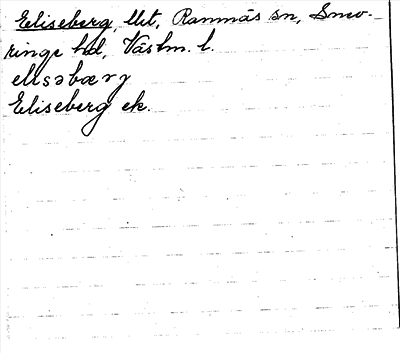 Eliseberg, lht, Ramnäs sn, Snev-
ringe hd, Västm. l.
elısəbærg
Eliseberg ek.